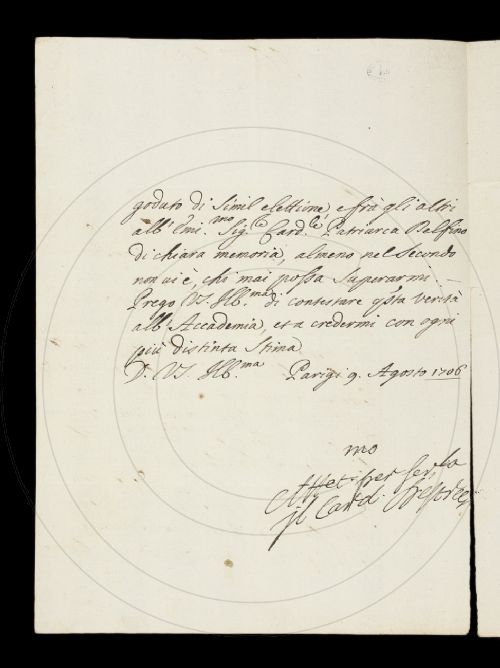 goduto di simil elettione, e frà gli altri
all' Emi.mo Sig.le Card.le Patriarca Delfino
di chiara memoria, almeno nel secondo
non vi è, chi mai possa superarmi.
Prego VS. Ill.ma di contestare q̃sta verità
all' Accademia, et a credermi con ogni
più distinta stima
D. VS. Ill.ma Parigi 9. Agosto 1706
mo
Affet per ser.
il Card.